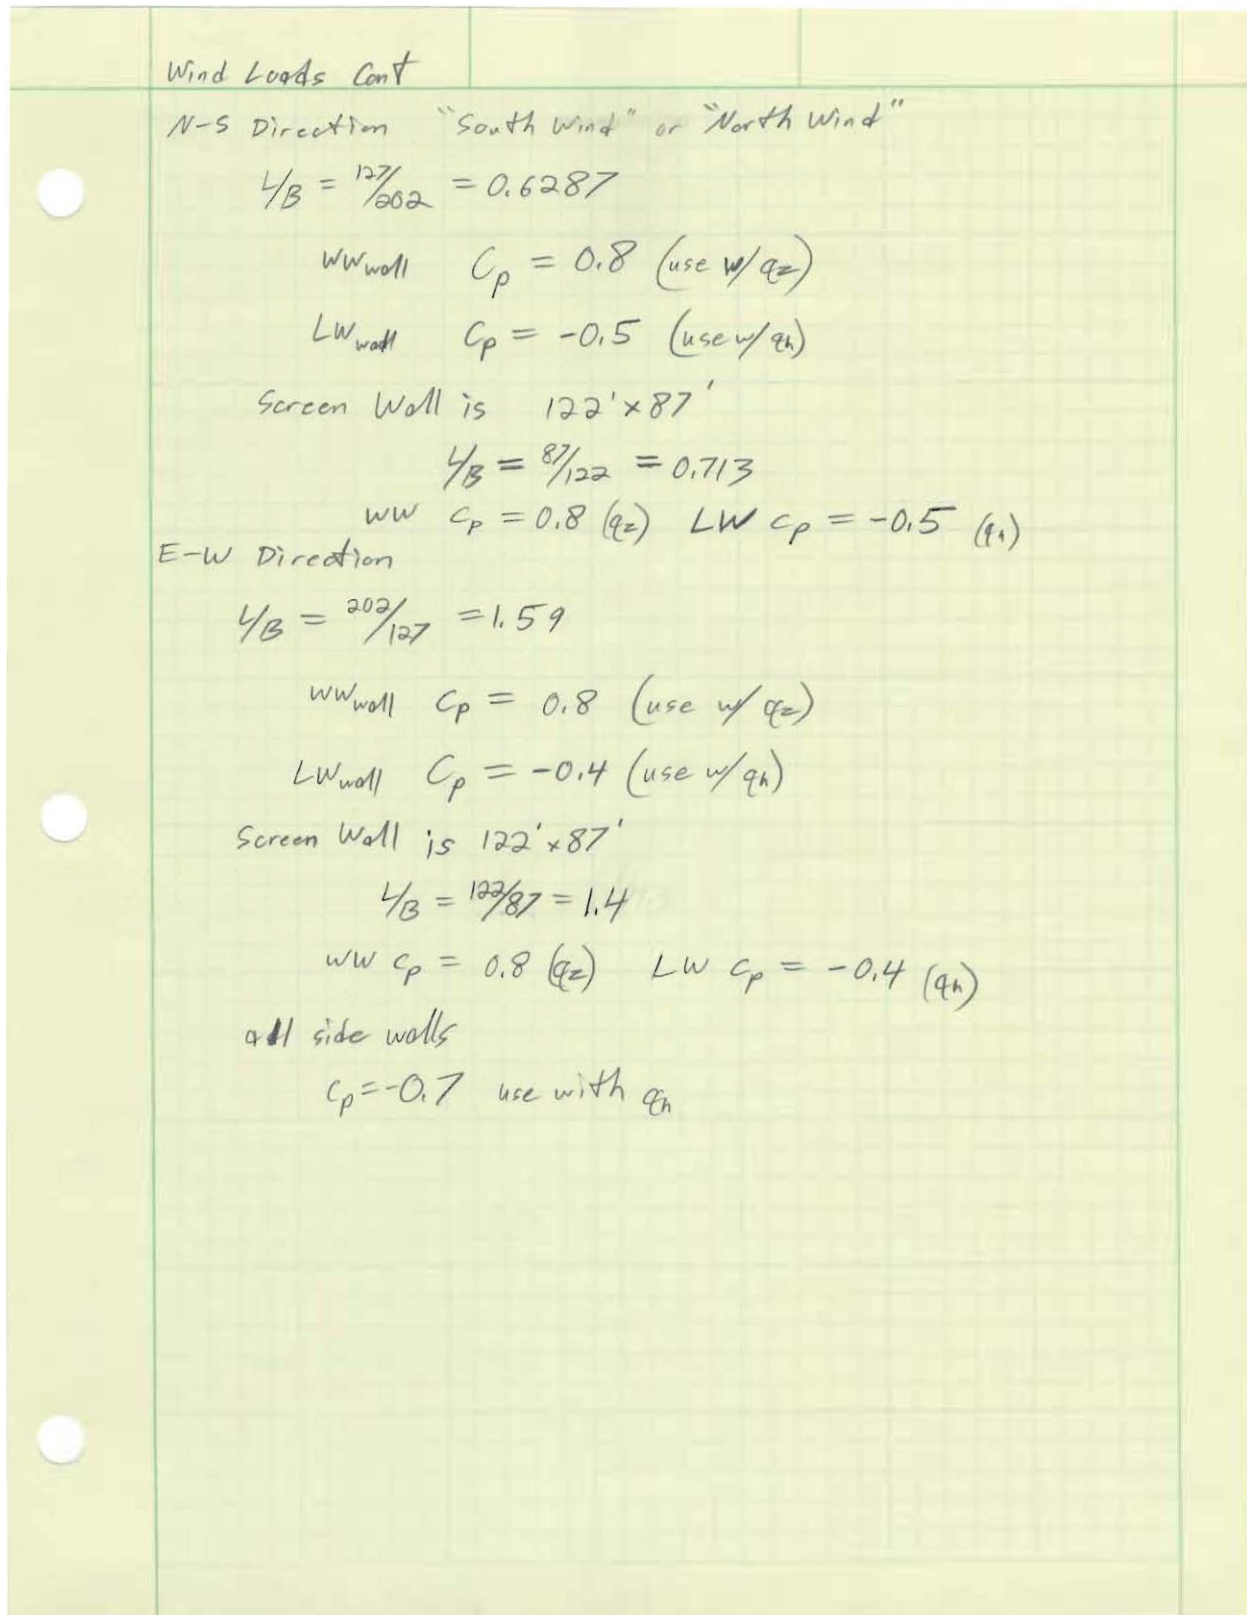 Wind Loads Cont
N-S Direction "South Wind" or "North Wind"
L/B = 127/202 = 0.6287
WW wall Cp = 0.8 (use w/ qz)
LW wall Cp = -0.5 (use w/ qh)
Screen Wall is 122' x 87'
L/B = 87/122 = 0.713
WW Cp = 0.8 (qz) LW Cp = -0.5 (qh)
E-W Direction
L/B = 202/127 = 1.59
WW wall Cp = 0.8 (use w/ qz)
LW wall Cp = -0.4 (use w/ qh)
Screen Wall is 122' x 87'
L/B = 122/87 = 1.4
WW Cp = 0.8 (qz) LW Cp = -0.4 (qh)
all side walls
Cp = -0.7 use with qh